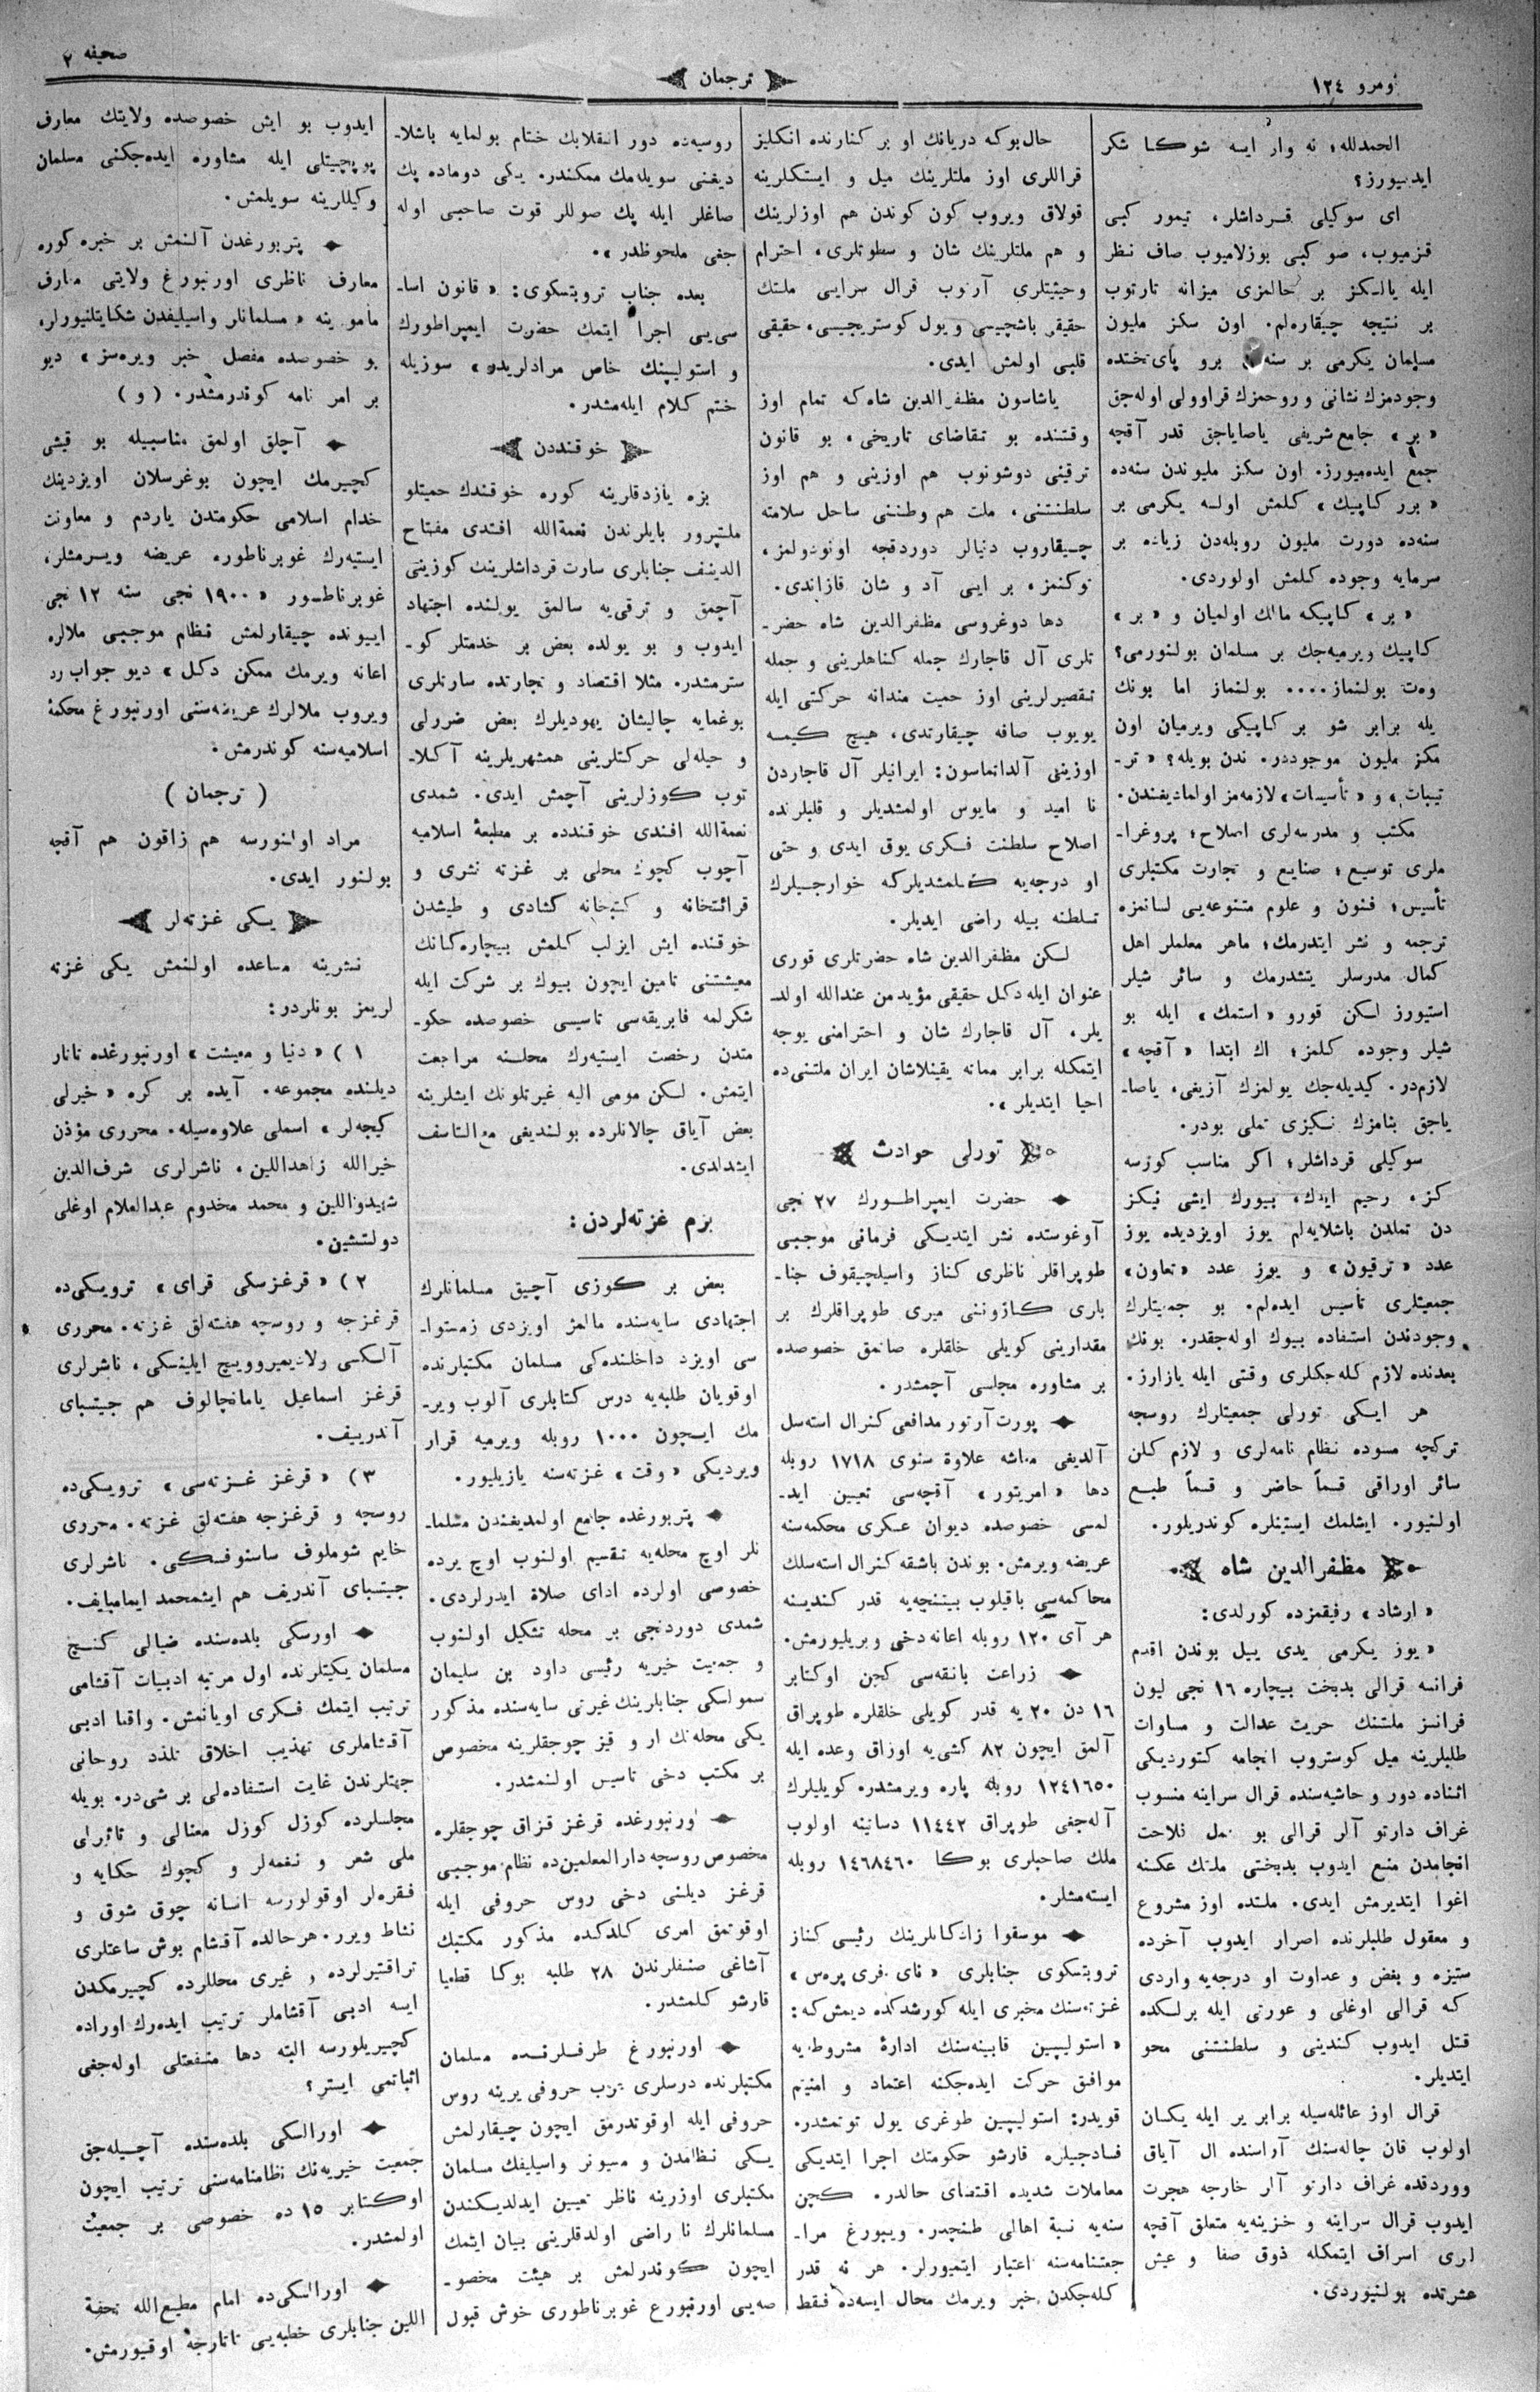 نومرو ١٢٤
ترجمان
صحيفه ٢
الحمدلله؛ نه وار ايسه شوكا شكر
ايدييورز؟
اى سوكيلى قرداشلر، تيمور كبى
قزميوب، صو كبى بوزلاميوب صاف نظر
ايله يالكز بر حالمزى ميزانه تارتوب
بر نتيجه چيقاره‌لم. اون سكز مليون
مسلمان يكرمى بر سنه برو پاى‌تختده
وجودمزك نشانى و روحمزك قراوولى اوله‌جق
«بر» جامع شريفى ياصاياجق قدر آقچه
جمع ايده‌ميورز. اون سكز مليوندن سنه‌ده
«برر كاپيك» كلمش اولسه يكرمى بر
سنه‌ده دورت مليون روبله‌دن زياده بر
سرمايه وجوده كلمش اولوردى.
«بر» كاپيكه مالك اولميان و «بر»
كاپيك ويرميه‌جك بر مسلمان بولنورمى؟
وه‌ت بولنماز.... بولنماز اما بونك
يله برابر شو بر كاپيكى ويرميان اون
سكز مليون موجوددر. ندن بويله؟ «تر-
تيبات» و «تأسيسات» لازمه‌مز اولماديغندن.
مكتب و مدرسه‌لرى اصلاح؛ پروغرا-
ملرى توسيع؛ صنايع و تجارت مكتبلرى
تأسيس؛ فنون و علوم متنوعه‌يى لسانمزه
ترجمه و نشر ايتدرمك؛ ماهر معلملر اهل
كمال مدرسلر يتشدرمك و سائر شيلر
استيورز لكن قورو «استمك» ايله بو
شيلر وجوده كلمز؛ اك ابتدا «آقچه»
لازم‌در. كيديله‌جك يولمزك آزيغى، ياصا-
ياجق بنامزك نكيزى تملى بودر.
سوكيلى قرداشلر؛ اكر مناسب كورسه
كز، رحيم ايدك، بيورك ايشى نيكز
دن تملدن باشلايه‌لم يوز اويزديده يوز
عدد «ترقيون» و يوز عدد «تعاون»
جمعيتلرى تأسيس ايده‌لم. بو جمعيتلرك
وجودندن استفاده بيوك اوله‌جقدر. بونك
بعدنده لازم كله‌جكلرى وقتى ايله يازارز.
هر ايكى تورلى جمعيتلرك روسجه
تركچه مسوده نظام نامه‌لرى و لازم كلن
سائر اوراقى قسماً حاضر و قسماً طبع
اولنيور. ايشلمك ايستينلره كوندريلور.
مظفرالدين شاه
«ارشاد» رفيقمزده كورلدى:
«يوز يكرمى يدى ييل بوندن اقدم
فرانسه قرالى بدبخت بيچاره ١٦ نجى ليون
فرانسز ملتنك حريت عدالت و مساوات
طلبلرينه ميل كوستروب انجامه كتورديكى
اثناده دور و حاشيه‌سنده قرال سراينه منسوب
غراف دارتو آلر قرالى بو عمل فلاحت
انجامدن منع ايدوب بدبختى ملتك عكسنه
اغوا ايتديرمش ايدى. ملتده اوز مشروع
و معقول طلبلرنده اصرار ايدوب آخرده
ستيزه و بغض و عداوت او درجه‌يه واردى
كه قرالى اوغلى و عورتى ايله برلكده
قتل ايدوب كندينى و سلطنتنى محو
ايتديلر.
قرال اوز عائله‌سيله برابر ير ايله يكسان
اولوب قان چاله‌سنك آراسنده ال آياق
ووردقده غراف دارتو آلر خارجه هجرت
ايدوب قرال سراينه و خزينه‌يه متعلق آقچه
لرى اسراف ايتمكله ذوق صفا و عيش
عشرتده بولنيوردى.
حال‌بوكه دريانك او بر كنارنده انكليز
قراللرى اوز ملتلرينك ميل و ايستكلرينه
قولاق ويروب كون كوندن هم اوزلرينك
و هم ملتلرينك شان و سطوتلرى، احترام
وحيثيتلرى آرتوب قرال سرايى ملتك
حقيقى باشچيسى و يول كوستريچيسى، حقيقى
قلبى اولمش ايدى.
ياشاسون مظفرالدين شاه كه تمام اوز
وقتنده بو تقاضاى تاريخى، بو قانون
ترقينى دوشونوب هم اوزينى و هم اوز
سلطنتنى، ملت هم وطننى ساحل سلامته
چيقاروب دنيالر دوردقچه اونودولمز،
توكنمز، بر ايى آد و شان قازاندى.
دها دوغروسى مظفرالدين شاه حضر-
تلرى آل قاجارك جمله كناهلرينى و جمله
تقصيرلرينى اوز حميت مندانه حركتى ايله
يويوب صافه چيقارتدى، هيچ كيمسه
اوزينى آلداتماسون: ايرانيلر آل قاجاردن
نا اميد و مايوس اولمشديلر و قلبلرنده
اصلاح سلطنت فكرى يوق ايدى و حتى
او درجه‌يه كلمشديلركه خوارجيلرك
تسلطنه بيله راضى ايديلر.
لكن مظفرالدين شاه حضرتلرى قورى
عنوان ايله دكل حقيقى مؤيد من عندالله اولد-
يلر، آل قاجارك شان و احترامنى يوجه
ايتمكله برابر مماته يقينلاشان ايران ملتنى‌ده
احيا ايتديلر».
تورلى حوادث
حضرت ايمپراطورك ٢٧ نجى
آوغوستده نشر ايتديكى فرمانى موجبى
طوپراقلر ناظرى كناز واسيلچيقوف جنا-
بارى كازوننى ميرى طوپراقلرك بر
مقدارينى كويلى خلقلره صاتمق خصوصده
بر مشاوره مجلسى آچمشدر.
پورت آرتور مدافعى كنرال استه‌سل
آلديغى معاشه علاوة سنوى ١٧١٨ روبله
دها «امريتور» آقچه‌سى تعيين ايد-
لمسى خصوصده ديوان عسكرى محكمه‌سنه
عريضه ويرمش. بوندن باشقه كنرال استه‌سلك
محاكمه‌سى باقيلوب بيتنجه‌يه قدر كندينه
هر آى ١٢٠ روبله اعانه دخى ويريليورمش.
زراعت بانقه‌سى كچن اوكتابر
١٦ دن ٢٠ يه قدر كويلى خلقلره طوپراق
آلمق ايچون ٨٢ كشى‌يه اوزاق وعده ايله
١٢٤١٦٥٠ روبله پاره ويرمشدر. كويليلرك
آله‌جغى طوپراق ١١٤٤٢ دساتينه اولوب
ملك صاحبلرى بوكا ١٤٦٨٤٦٠ روبله
ايسته‌مشلر.
موسقوا زادكانلرينك رئيسى كناز
تروبتسكوى جنابلرى «ناى فرى پره‌س»
غزته‌سنك مخبرى ايله كورشدكده ديمش‌كه:
«استوليپين قابينه‌سنك ادارۀ مشروطه‌يه
موافق حركت ايده‌جكنه اعتماد و امنيتم
قويدر: استوليپين طوغرى يول توتمشدر.
فسادجيلره قارشو حكومتك اجرا ايتديكى
معاملات شديده اقتضاى حالدر. كچن
سنه‌يه نسبة اهالى طنچدر. ويبورغ مرا-
جعتنامه‌سنه اعتبار ايتميورلر. هر نه قدر
كله‌جكدن خبر ويرمك محال ايسه‌ده فقط
روسيه‌ده دور انقلابك ختام بولمايه باشلا-
ديغنى سويله‌مك ممكندر. يكى دوماده پك
صاغلر ايله پك صوللر قوت صاحبى اوله
جغى ملحوظدر».
بعده جناب تروبتسكوى: «قانون اسا-
سى‌يى اجرا ايتمك حضرت ايمپراطورك
و استوليپنك خاص مرادلريدر» سوزيله
ختم كلام ايله‌مشدر.
خوقنددن
بزه يازدقلرينه كوره خوقندك حميتلو
ملتپرور بايلرندن نعمةالله افندى مفتاح
الدينف جنابلرى سارت قرداشلرينك كوزينى
آچمق و ترقى‌يه سالمق يولنده اجتهاد
ايدوب و بو يولده بعض بر خدمتلر كو-
سترمشدر. مثلا اقتصاد و تجارتده سارتلرى
بوغمايه چاليشان يهوديلرك بعض ضررلى
و حيله‌لى حركتلرينى همشهريلرينه آكلا-
توب كوزلرينى آچمش ايدى. شمدى
نعمةالله افندى خوقندده بر مطبعۀ اسلاميه
آچوب كچوك محلى بر غزته نشرى و
قرائتخانه و كتبخانه كشادى و طيشدن
خوقنده ايش ايزلب كلمش بيچاره‌كانك
معيشتنى تامين ايچون بيوك بر شركت ايله
شكرلمه فابريقه‌سى تاسيسى خصوصده حكو-
متدن رخصت ايستيه‌رك محلسنه مراجعت
ايتمش. لكن مومى اليه غيرتلونك ايشلرينه
بعض آياق چالانلرده بولنديغى مع‌التاسف
ايشدلدى.
بزم غزته‌لردن:
بعض بر كوزى آچيق مسلمانلرك
اجتهادى سايه‌سنده مالمژ اويزدى زمستوا-
سى اويزد داخلنده‌كى مسلمان مكتبلرنده
اوقويان طلبه‌يه درس كتابلرى آلوب وير-
مك ايچون ١٠٠٠ روبله ويرميه قرار
ويرديكى «وقت» غزته‌سنه يازيليور.
پتربورغده جامع اولمديغندن مسلما-
نلر اوچ محله‌يه تقسيم اولنوب اوچ يرده
خصوصى اولرده اداى صلاة ايدرلردى.
شمدى دوردنجى بر محله تشكيل اولنوب
و جمعيت خيريه رئيسى داود بن سليمان
سمولسكى جنابلرينك غيرتى سايه‌سنده مذكور
يكى محله‌نك ار و قيز چوجقلرينه مخصوص
بر مكتب دخى تاسيس اولنمشدر.
اورنبورغده قرغز قزاق چوجقلره
مخصوص روسجه دارالمعلمين‌ده نظام موجبى
قرغز ديلنى دخى روس حروفى ايله
اوقوتمق امرى كلدكده مذكور مكتبك
آشاغى صنفلرندن ٢٨ طلبه بوكا قطعيا
قارشو كلمشدر.
اورنبورغ طرفلرنده مسلمان
مكتبلرنده درسلرى عرب حروفى يرينه روس
حروفى ايله اوقوتدرمق ايچون چيقارلمش
يكى نظامدن و ميسيونر واسيليفك مسلمان
مكتبلرى اوزرينه ناظر تعيين ايدلديكندن
مسلمانلرك نا راضى اولدقلرينى بيان ايتمك
ايچون كوندرلمش بر هيئت مخصو-
صه‌يى اورنبورغ غوبرناطورى خوش قبول
ايدوب بو ايش خصوصده ولايتك معارف
پوپچيتلى ايله مشاوره ايده‌جكنى مسلمان
وكيللرينه سويلمش.
پتربورغدن آلنمش بر خبره كوره
معارف ناظرى اورنبورغ ولايتى معارف
مامورينه «مسلمانلر واسيليفدن شكايتلنيورلر،
بو خصوصده مفصل خبر ويره‌سز» ديو
بر امر نامه كوندرمشدر. (و)
آچلق اولمق مناسبيله بو قيشى
كچيرمك ايچون بوغرسلان اويزدينك
خدام اسلامى حكومتدن ياردم و معاونت
ايستيه‌رك غوبرناطوره عريضه ويرمشلر،
غوبرناطور «١٩٠٠ نجى سنه ١٢ نجى
اييونده چيقارلمش نظام موجبى ملالره
اعانه ويرمك ممكن دكل» ديو جواب رد
ويروب ملالرك عريضه‌سنى اورنبورغ محكمۀ
اسلاميه‌سنه كوندرمش.
(ترجمان)
مراد اولنورسه هم زاقون هم آقچه
بولنور ايدى.
يكى غزته‌لر
نشرينه مساعده اولنمش يكى غزته
لريمز بونلردر:
١) «دنيا و معيشت» اورنبورغده تاتار
ديلنده مجموعه. آيده بر كره «خيرلى
كيجه‌لر» اسملى علاوه‌سيله. محررى مؤذن
خيرالله زاهداللين، ناشرلرى شرف‌الدين
شهيدواللين و محمد مخدوم عبدالعلام اوغلى
دولتشين.
٢) «قرغزسكى قراى» ترويسكى‌ده
قرغزجه و روسجه هفته‌لق غزته. محررى
آلكسى ولاديميروويچ ايلينسكى، ناشرلرى
قرغز اسماعيل يامانچالوف هم جيتبساى
آندرييف.
٣) «قرغز غزته‌سى» ترويسكى‌ده
روسجه و قرغزجه هفته‌لق غزته. محررى
خايم شوملوف ساسنوفسكى. ناشرلرى
جيتبساى آندريف هم ايشمحمد ايمامبايف.
اورسكى بلده‌سنده ضيالى كنج
مسلمان يكيتلرنده اول مرتبه ادبيات آقشامى
ترتيب ايتمك فكرى اويانمش. واقعا ادبى
آقشاملرى تهذيب اخلاق تلذذ روحانى
جهتلرندن غايت استفاده‌لى بر شى‌در. بويله
مجلسلرده كوزل كوزل معنالى و تاثيرلى
ملى شعر و نغمه‌لر و كچوك حكايه و
فقره‌لر اوقولورسه انسانه چوق شوق و
نشاط ويرر. هرحالده آقشام بوش ساعتلرى
تراقتيرلرده و غيرى محللرده كچيرمكدن
ايسه ادبى آقشاملر ترتيب ايده‌رك اوراده
كچيريلورسه البته دها منفعتلى اوله‌جغى
اثباتمى ايستر؟
اورالسكى بلده‌سنده آچيله‌جق
جمعيت خيريه‌نك نظامنامه‌سنى ترتيب ايچون
اوكتابر ١٥ ده خصوصى بر جمعيت
اولمشدر.
اورالسكى‌ده امام مطيع‌الله تحفة
اللين جنابلرى خطبه‌يى تاتارجه اوقيورمش.